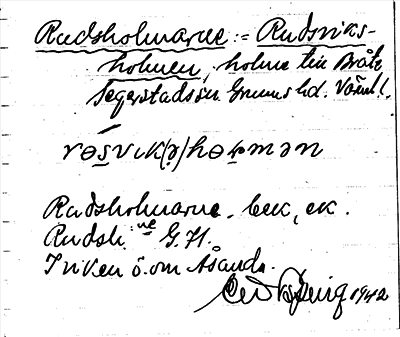 Rudsholmarne = Rudsviks-
holmen, holme till Bråte
Segerstads sn. Grums hd. Värml.
rɵs̱vɩk(ə)hɵɽmən
Rudsholmarne. bek, ek.
Rudsh:ne G. 71.
I viken ö. om Åsanda.
1942